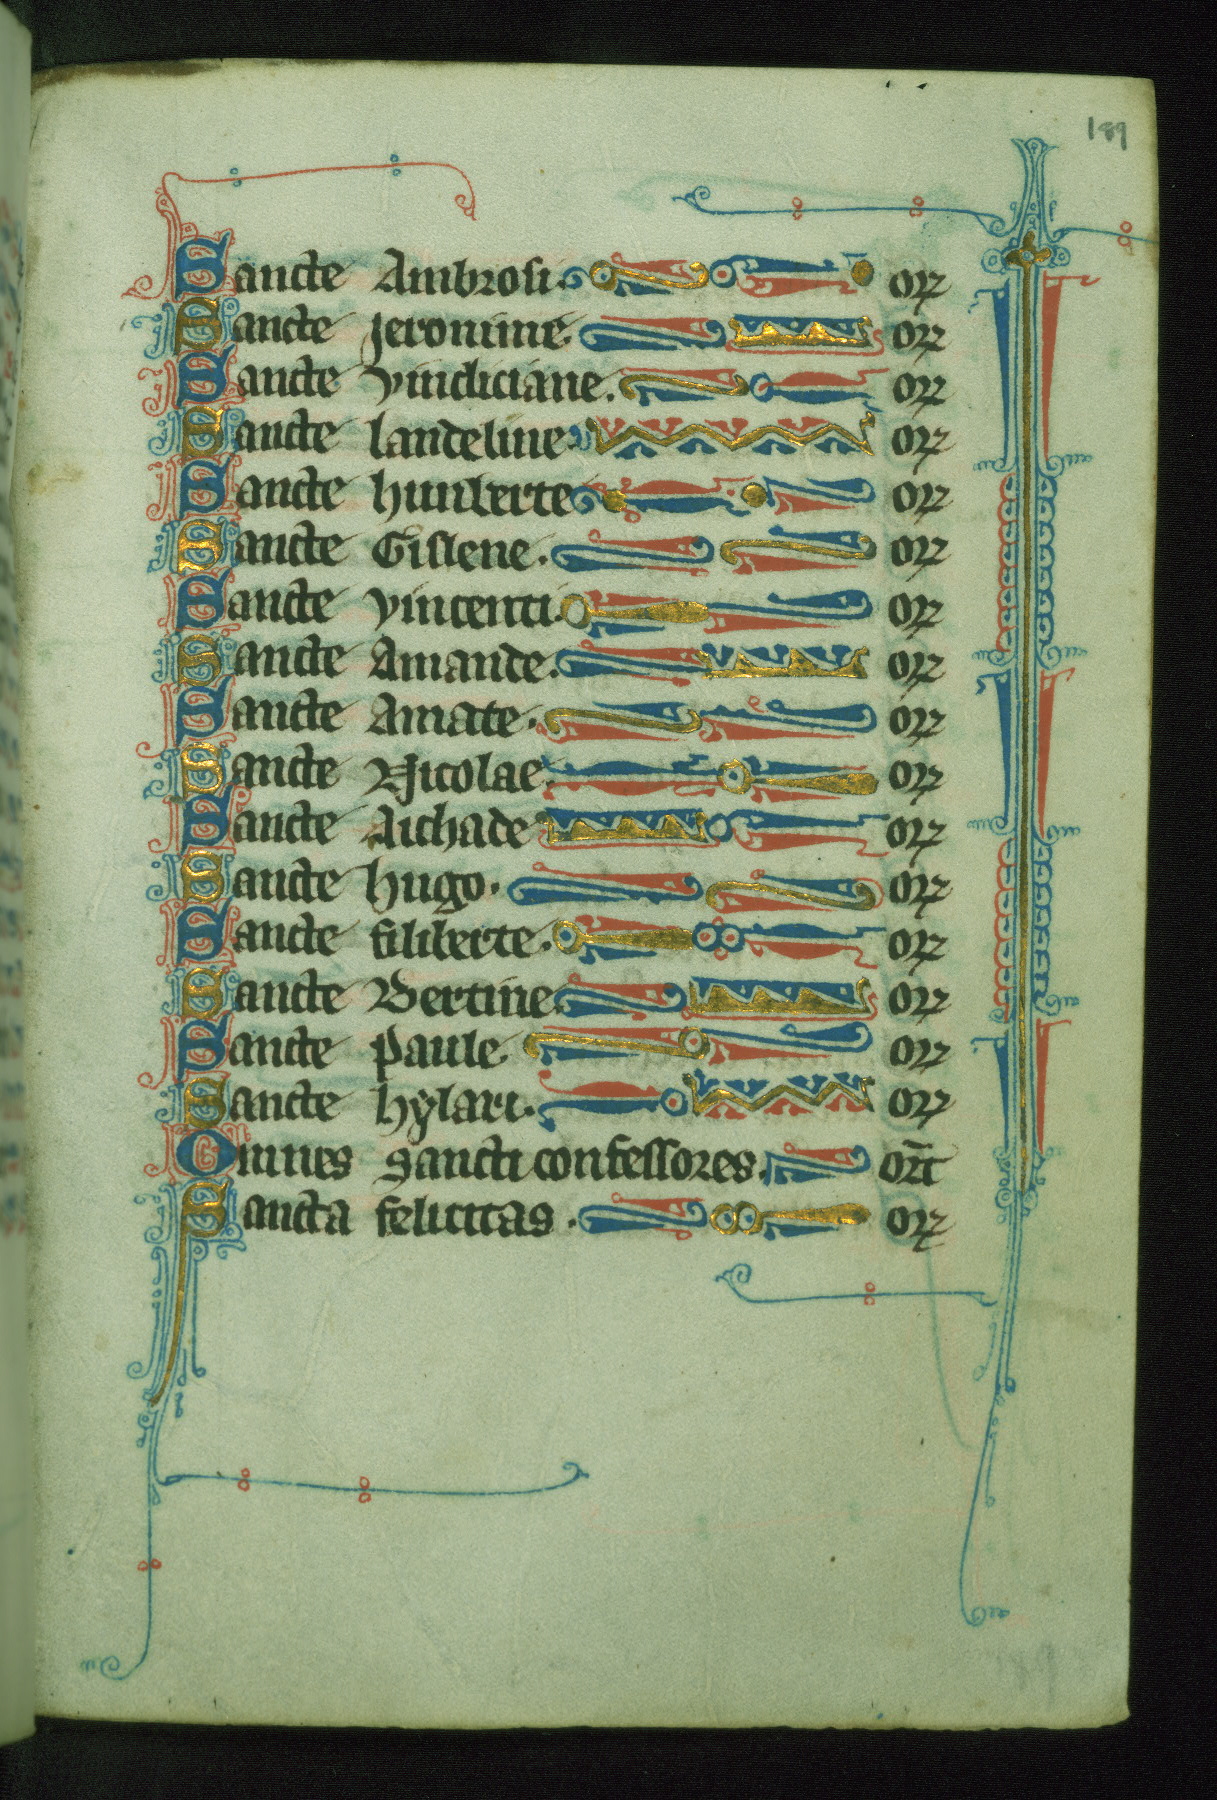 189
Sancte Ambrosi. or
Sancte Jeronime. or
Sancte Vindiciane. or
Sancte landeline. or
Sancte humberte. or
Sancte Gislene. or
Sancte Vincenti. or
Sancte Amande. or
Sancte Amate. or
Sancte Nicolae. or
Sancte Aichade. or
Sancte hugo. or
Sancte filiberte. or
Sancte Bertine. or
Sancte paule. or
Sancte hylari. or
Omnes sancti confessores. orāt
Sancta felicitas. or